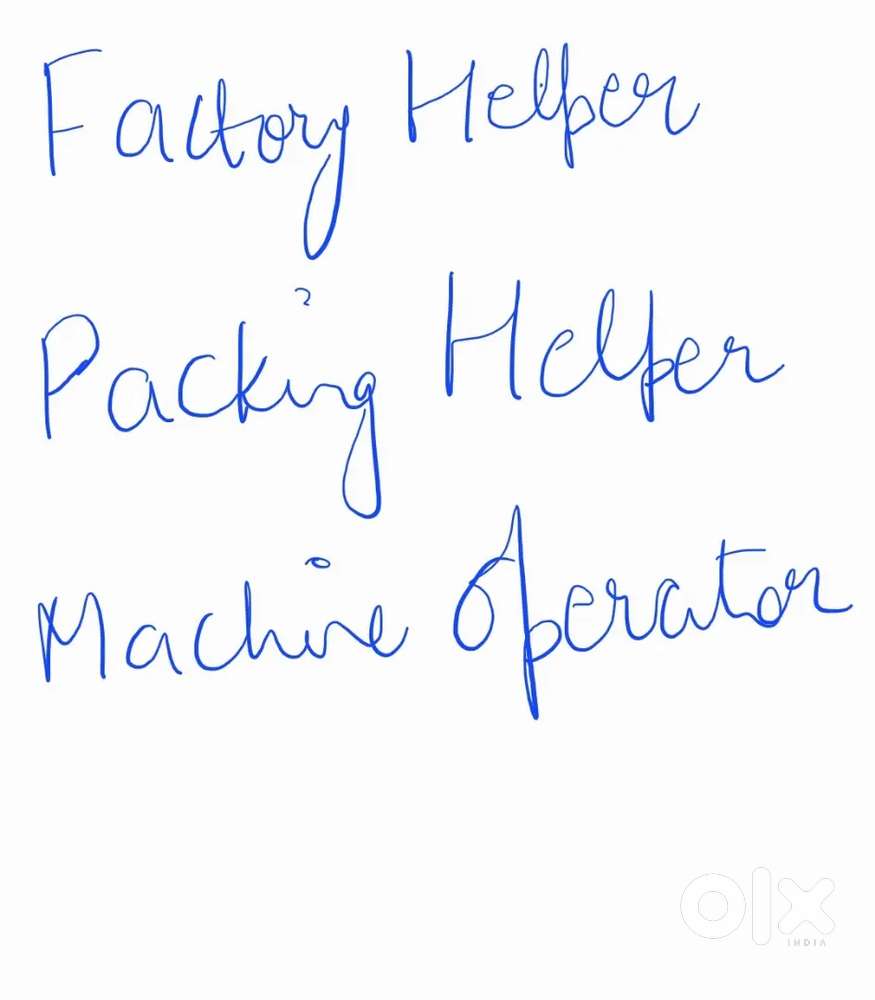 Factory Helper
Packing Helper
Machine Operator
olx
INDIA